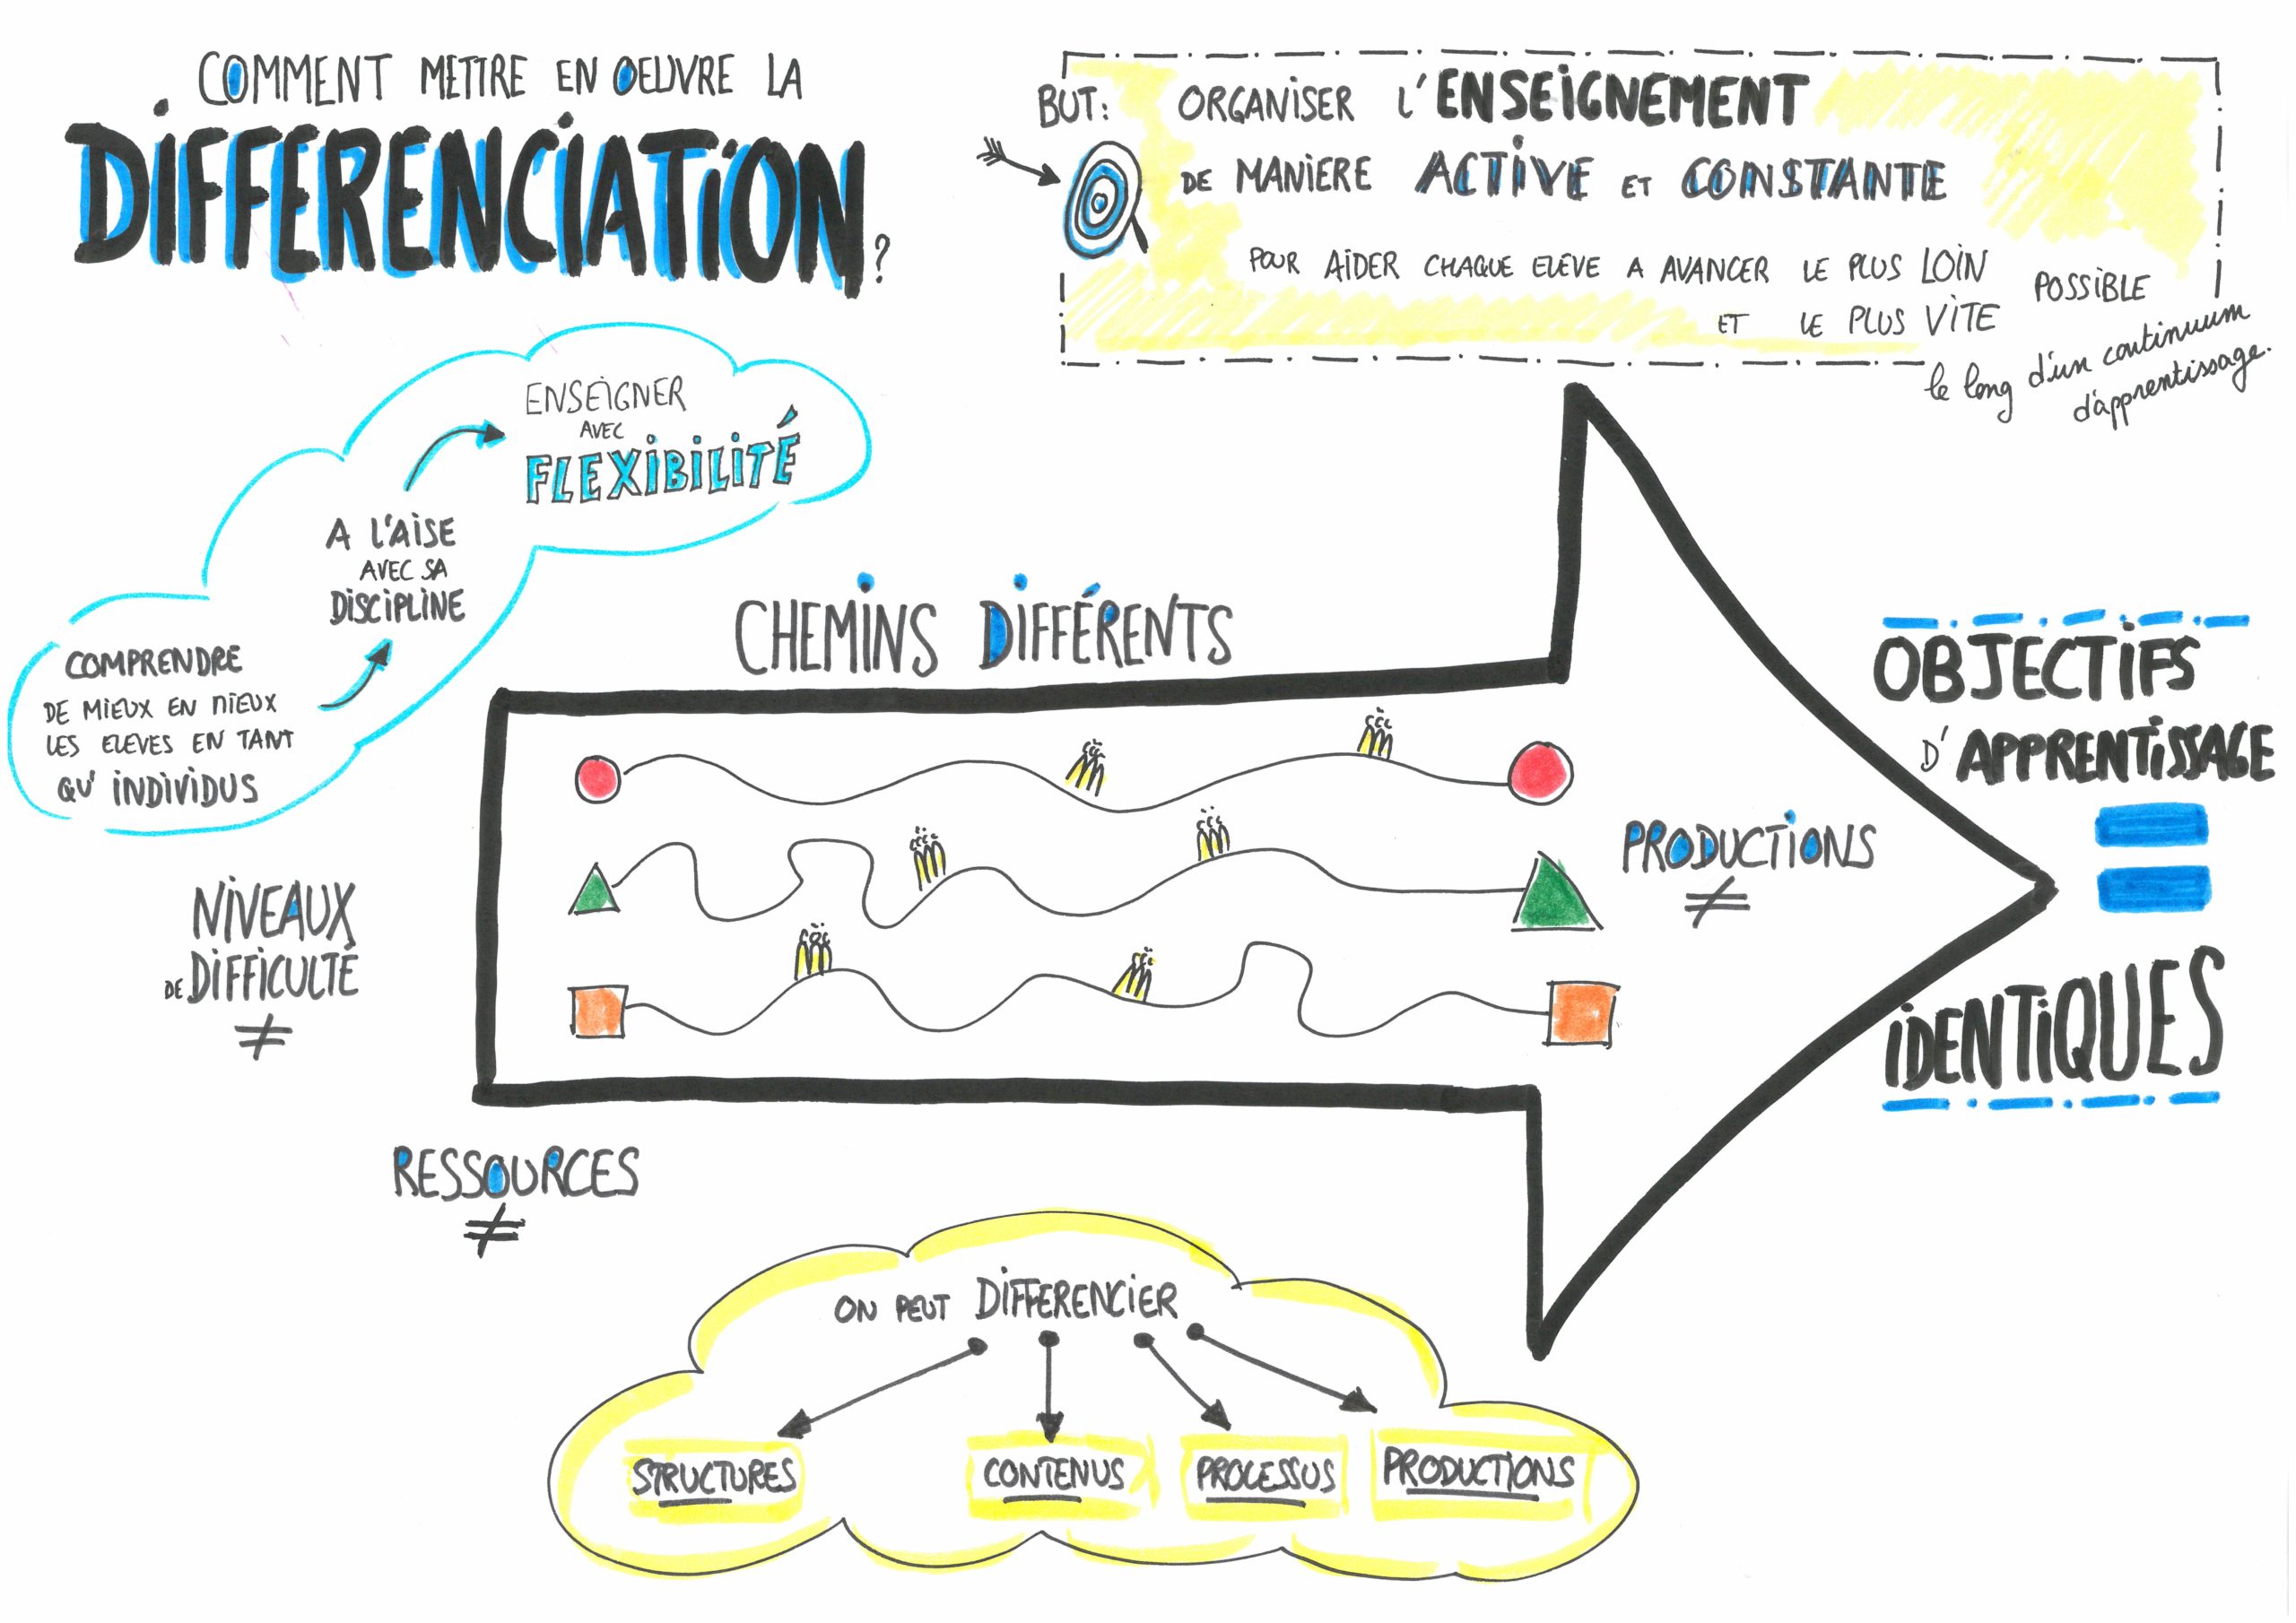 COMMENT METTRE EN OEUVRE LA
DIFFERENCIATION ?
BUT: ORGANISER L'ENSEIGNEMENT
DE MANIERE ACTIVE ET CONSTANTE
POUR AIDER CHAQUE ELEVE A AVANCER LE PLUS LOIN
ET LE PLUS VITE
POSSIBLE
le long d'un continuum
d'apprentissage.
ENSEIGNER
AVEC
FLEXIBILITÉ
A L'AISE
AVEC SA
DISCIPLINE
COMPRENDRE
DE MIEUX EN MIEUX
LES ELEVES EN TANT
QU'INDIVIDUS
CHEMINS DIFFÉRENTS
OBJECTIFS
D'APPRENTISSAGE
=
IDENTIQUES
PRODUCTIONS
≠
NIVEAUX
DE DIFFICULTÉ
≠
RESSOURCES
≠
ON PEUT DIFFERENCIER
STRUCTURES
CONTENUS
PROCESSUS
PRODUCTIONS